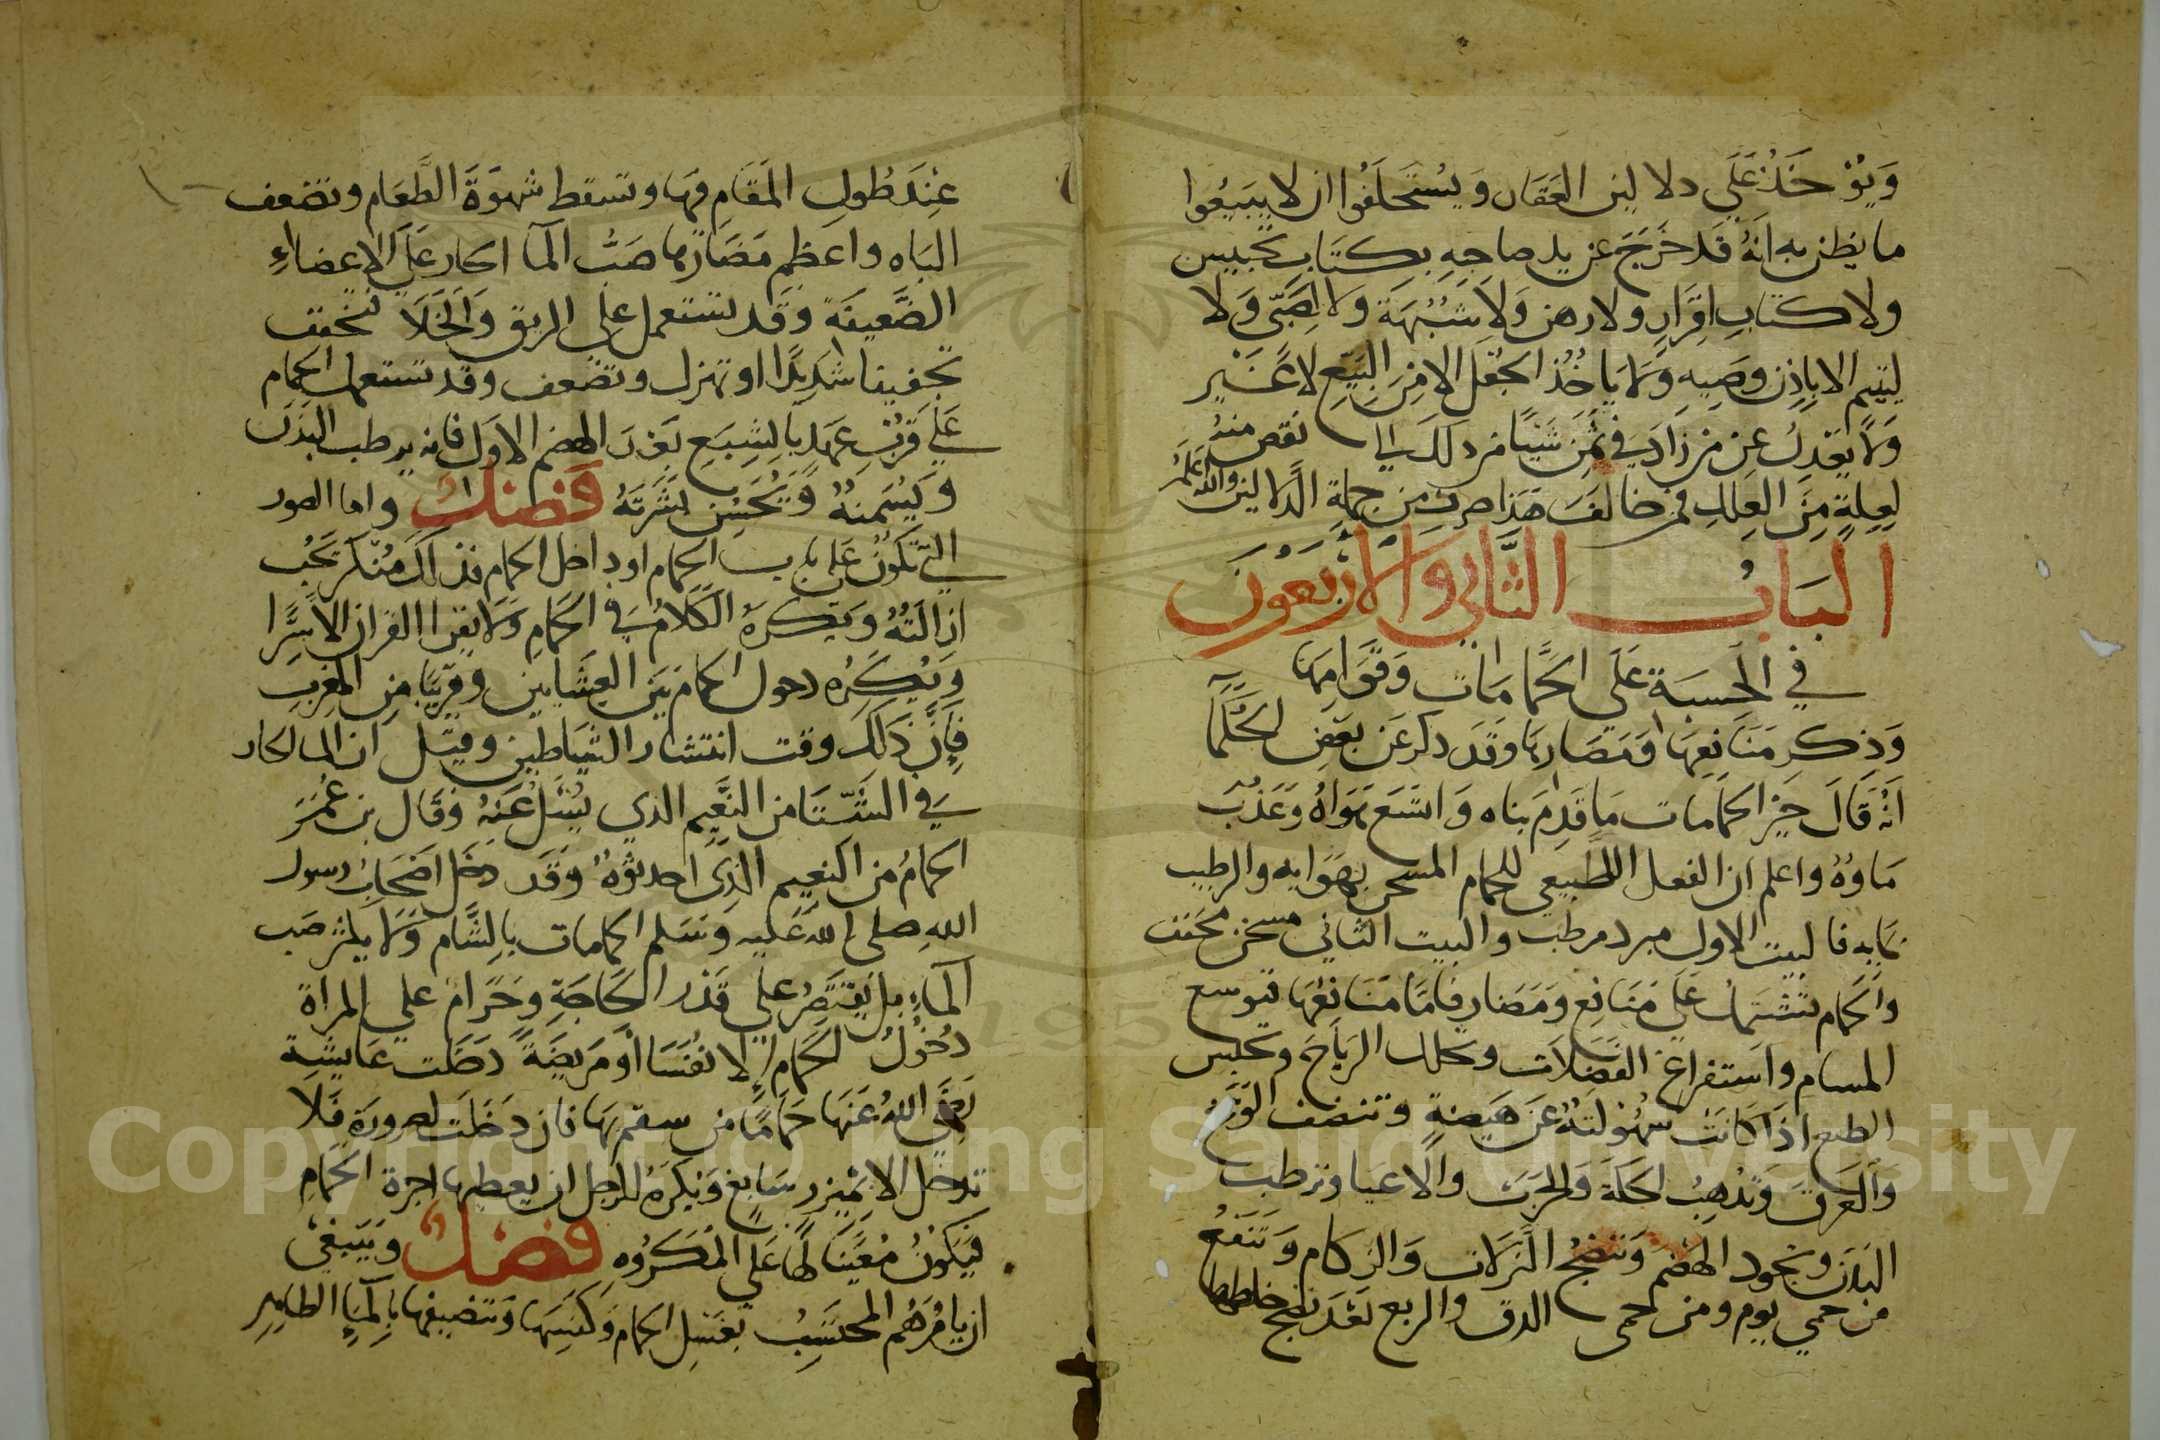 وَيُؤْخَذُ عَلَى دلالين العَقَار وَيُسْتَحْلَفُوا ان لا يبيعُوا
ما يظن به انهُ قَد خَرَجَ عن يد صاحبِهِ بِكتَابِ تحبيس
ولا كتَابِ اِقرَارٍ ولا رهن وَلا شُبْهَة وَلا لِصَبّي وَلا
ليتيم الا باِذن وصيه وَلا يَاخُذ الجُعْل الا مِنَ البَيّع لا غَيْر
وَلا يعْدِلُ عن من زَادَ في ثَمَن شَيْئًا من ذلك الي نقص منه
لعِلةٍ مِنَ العِللِ فمن خالفَ هَذا صرف من جملةِ الدَّلالين والله اعلم
البَابُ الثَّانِي وَالاَرْبَعُونَ
في الحسبَة عَلَى الحَّمامَات وَقوَامِهَا
وَذِكر مَنَافعِهَا وَمَضَارهَا وَقد ذكر عَن بعَض الحُكَمآ
انهُ قَالَ خيرُ الحَمامات مَا قَدِمَ بناه وَاتسَع هَوَاهُ وَعَذُبَ
مَاؤهُ واعلم ان الفعل الطَبيعي للحمام المسخن بهوَايه والرطيب
بمَايه فالبيت الاول مبرد مرطب والبيت الثاني مسخن مجفف
والحَمام تشتمِل عَلى مَنَافع وَمَضَار فامَّا مَنَافعهَا فتوسع
المسام واستفراغ الفَضلات وتحلل الرياحَ وتحبس
الطبع اذَا كانَت سهُولَتهُ عَن هَيضةٍ وتنضف الوَسَخ
وَالعَرق وَتُذهِبُ الحكَةَ وَالجَرَب والاَعيا وترطب
البَدَن وتجود الهَضم وَتنضجُ النَزلات وَالزكام وَتَنفَعُ
من حمي يوم ومن حمي الدق والربع بَعْدَ نضج خلطها
عِنْدَ طُولِ المَقَامِ فِيهَا وتسقط شهوَةَ الطَّعَام وتضعف
البَاه واعظم مَضَارهَا صَبُّ المآ الحار عَلي الاعضاءِ
الضَّعيفَة وَقد تستعمل علي الريق وَالخَلا تجفف
تجفيفا شدِيدًا او تهزل وتضعف وقد تستعمل الحمام
عَلي قُربِ عَهدٍ بالشِبَعِ بَعْدَ الهضم الاوَل فانه يرطب البَدَن
وَيُسَمنهُ وَيُحَسِن بشَرَتهُ فَصْلٌ واما الصور
التي تَكُونُ عَلي باب الحمام او داخل الحمام فذالك مُنْكَر تجُبُ
ازالَتهُ وَيكرَهُ الكَلامُ في الحَمامِ وَلا يَقرا القران الاَ سَّرا
وَيُكرَه دخول الحمام بَين العِشَايين وَقَريبًا مِن المَغرِب
فَإنَّ ذَلكَ وقت انتشار الشيَاطين وقِيل ان الما الحار
في الشّتَا من النَّعِيم الذي يُسْئلُ عَنهُ وَقَال بن عُمَرَ
الحمامُ من النَعِيم الذِي احدثوُهُ وَقَد دَخَل اصْحَابُ رسول
الله صلى الله عَليه وَسَلم الحمامات بالشَّام وَلا يكثر صَب
المآءِ بل يقتَصِرُ عَلي قَدر الحَاجَةِ وحَرَام علي المراة
دُخُولُ الحَمام إلا نفسَا أو مَريضَةً دَخَلت عَايشة
رَضَيَ اللهُ عَنهَا حَمَامًا من سقم بهَا فان دَخَلَت لضرورَةٍ فَلا
تدخل الا بمَيزر سَابغ وَيكرَهُ للرَجل ان يعطيها اجرة الحَمامِ
فَيَكُونُ مُعْيَنا لهَا عَلي المَكرُوهِ فَصْلٌ وَيَنبَغي
ان يامُرهُم المحتَسِبُ بغَسْلِ الحمام وَكنسِهَا وَتنضيفهَا بالمآءِ الطاهِرِ
Copyright © King Saud University
1957